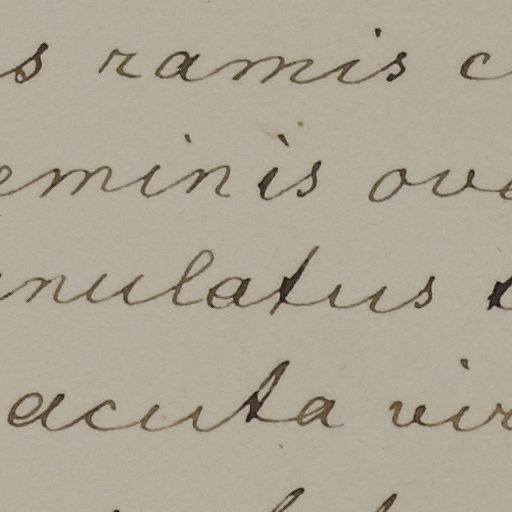 s ramis c
eminis ova
nulatus
acuta vir